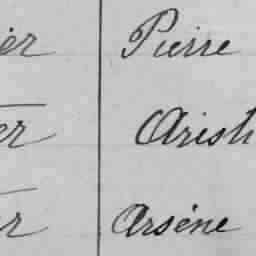 ier Pierre
er Arist
er Arsène